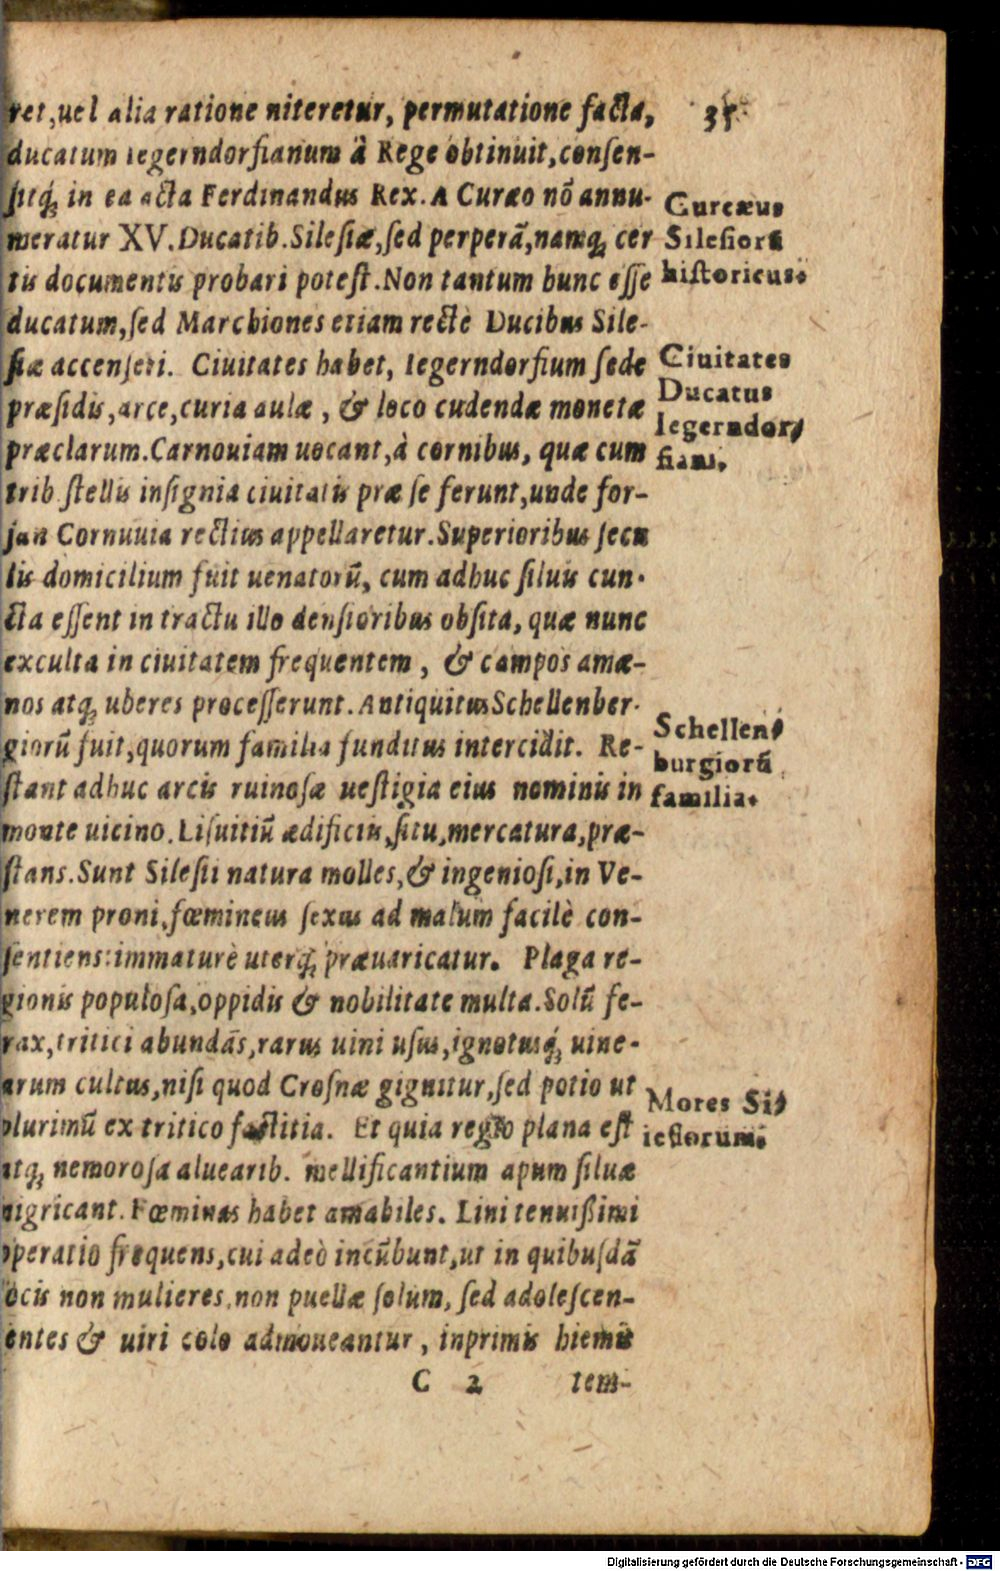 ret, uel alia ratione niteretur, permutatione facta,
35
ducatum Iegerndorfianum à Rege obtinuit, consen-
sitq́; in ea acta Ferdinandus Rex. A Curæo nõ annu-
meratur XV. Ducatib. Silesiæ, sed perperã, namq́; cer
tis documentis probari potest. Non tantum hunc esse
ducatum, sed Marchiones etiam rectè Ducibus Sile-
siæ accenseri. Ciuitates habet, Iegerndorfium sede
præsidis, arce, curia aulæ, & loco cudendæ monetæ
præclarum. Carnouiam uocant, à cornibus, quæ cum
trib. stellis insignia ciuitatis præ se ferunt, unde for-
san Cornuuia rectius appellaretur. Superioribus secu
lis domicilium fuit uenatorũ, cum adhuc siluis cun-
cta essent in tractu illo densioribus obsita, quæ nunc
exculta in ciuitatem frequentem, & campos amæ-
nos atq́; uberes processerunt. Antiquitus Schellenber-
giorũ fuit, quorum familia funditus intercidit. Re-
stant adhuc arcis ruinosæ uestigia eius nominis in
monte uicino. Lisuitiũ ædificiis, situ, mercatura, præ-
stans. Sunt Silesii natura molles, & ingeniosi, in Ve-
nerem proni, fœmineus sexus ad malum facilè con-
sentiens: immaturè uterq́; præuaricatur. Plaga re-
gionis populosa, oppidis & nobilitate multa. Solũ fe-
rax, tritici abundãs, rarus uini usus, ignotusq́; uine-
arum cultus, nisi quod Crosnæ gignitur, sed potio ut
plurimũ ex tritico factitia. Et quia regio plana est
atq́; nemorosa aluearib. mellificantium apum siluæ
nigricant. Fœminas habet amabiles. Lini tenuißimi
operatio frequens, cui adeò incũbunt, ut in quibusdã
locis non mulieres, non puellæ solum, sed adolescen-
entes & uiri colo admoueantur, inprimis hiemis
C 2 tem-
Gureæus
Silesiorũ
historicus.
Ciuitates
Ducatus
Iegerndor-
fiani.
Schellen-
burgiorũ
familia.
Mores Si-
lesiorum.
Digitalisierung gefördert durch die Deutsche Forschungsgemeinschaft - DFG